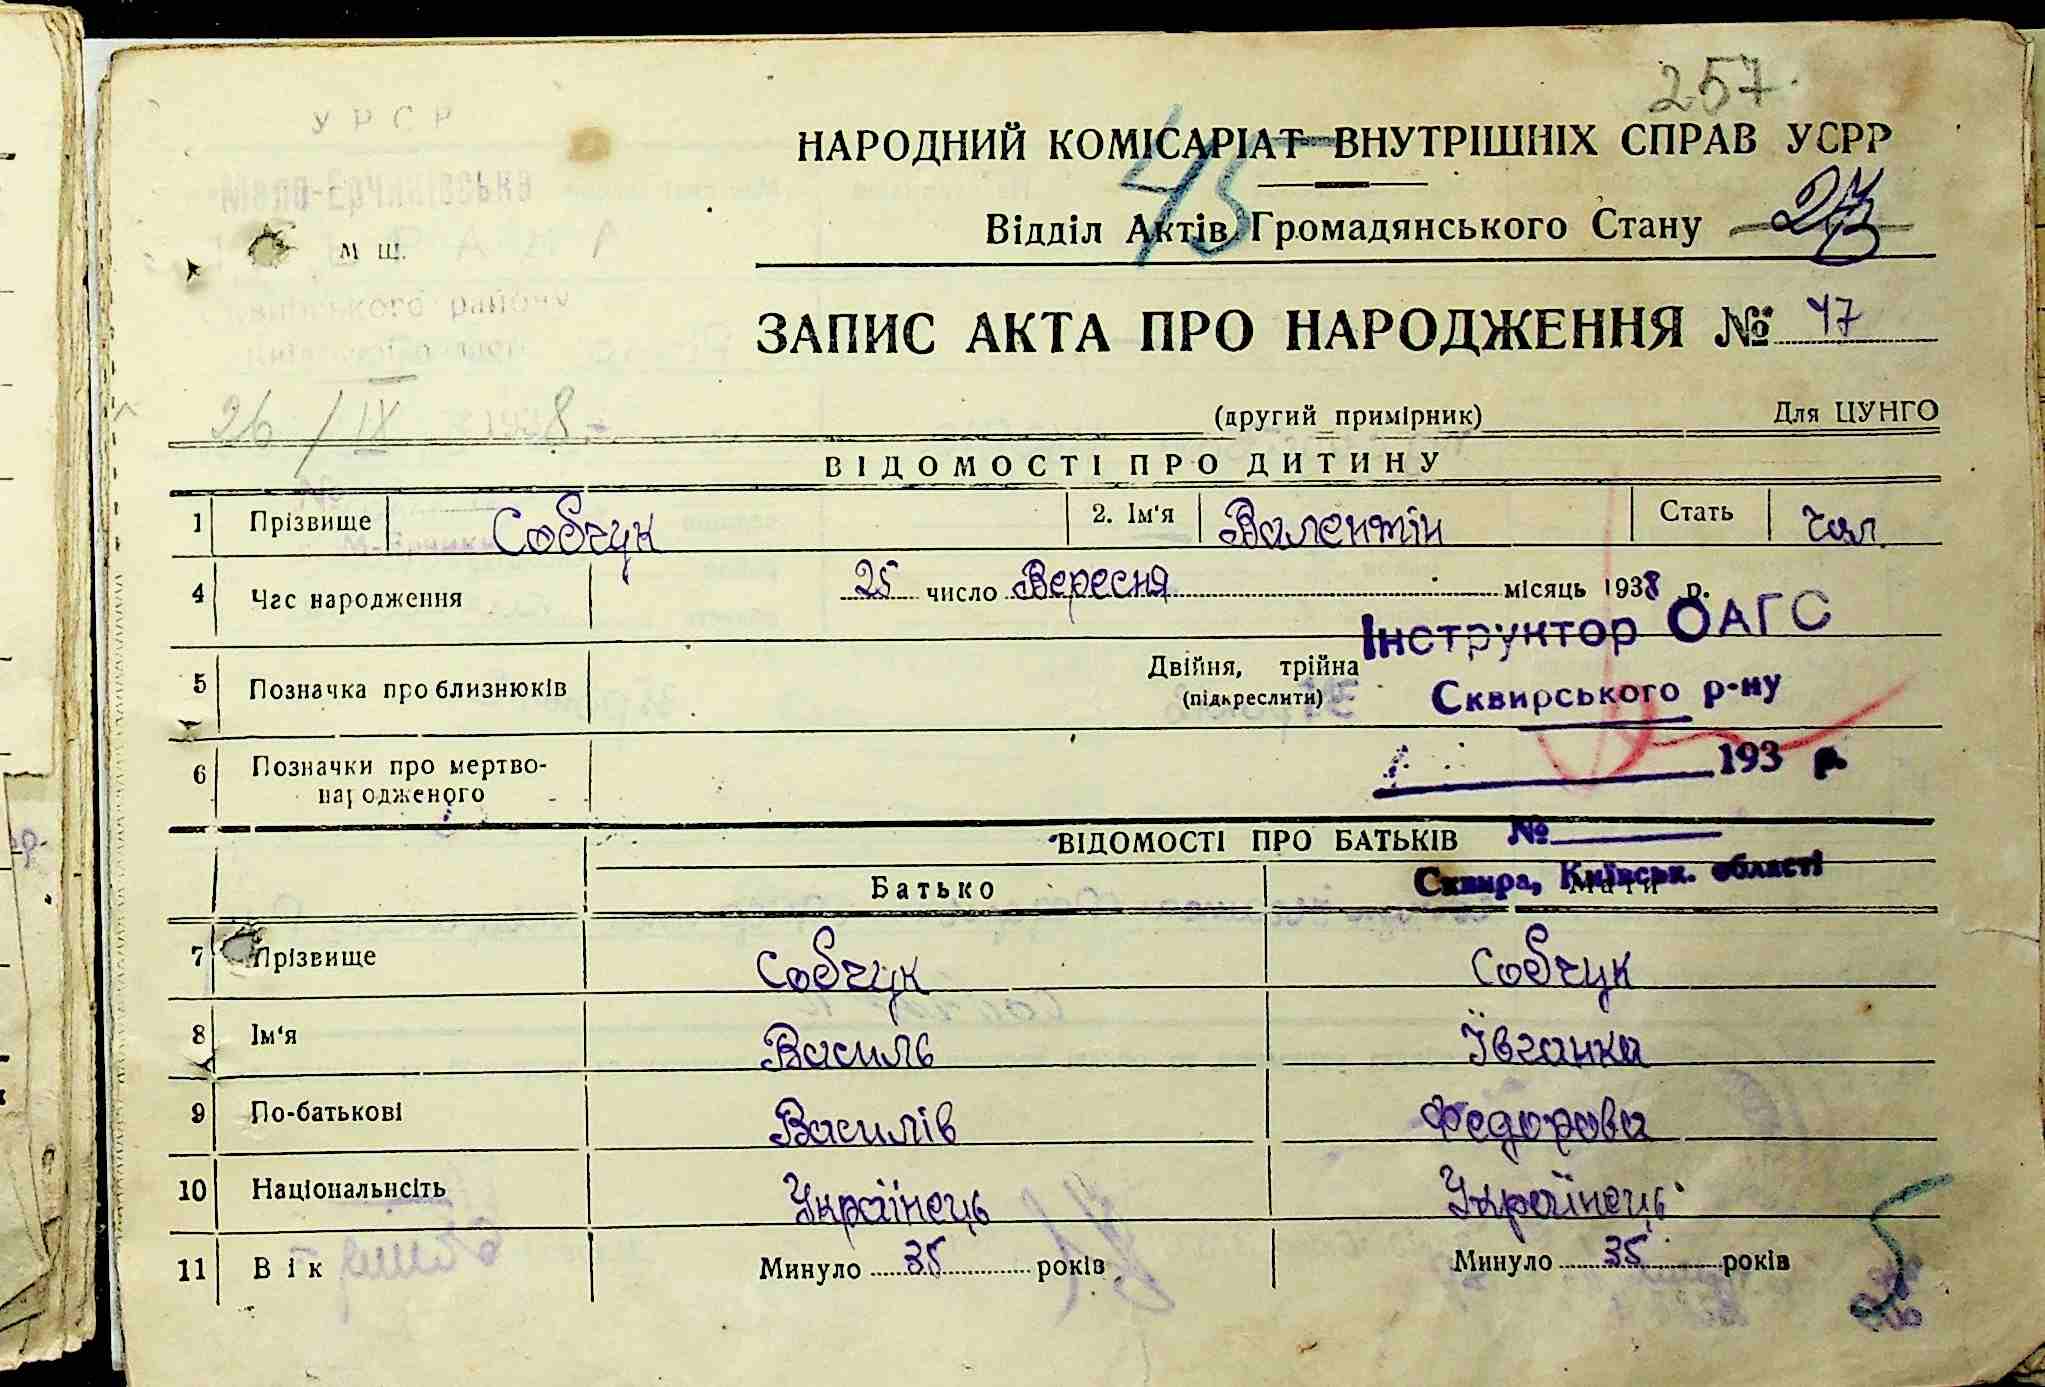 257.
УРСР
НАРОДНИЙ КОМІСАРІАТ ВНУТРІШНІХ СПРАВ УСРР
45
Відділ Актів Громадянського Стану
М Ш.
ЗАПИС АКТА ПРО НАРОДЖЕННЯ № 47
26/IX 8
(другий примірник) Для ЦУНГО
ВІДОМОСТІ ПРО ДИТИНУ
1 Прізвище Собчук 2. Ім'я Валентін Стать чол.
4 Час народження 25 число Вересня місяць 1938 р.
Інструктор ОАГС
5 Позначка про близнюків Двійня, трійна
(підкреслити)
Сквирського р-ну
6 Позначки про мертво-
народженого
193 р.
ВІДОМОСТІ ПРО БАТЬКІВ №
Сквира, Київськ. області
Батько Мати
7 Прізвище Собчук Собчук
8 Ім'я Василь Ївганка
9 По-батькові Василів Федорова
10 Національнсіть Українець Українець
11 Вік Минуло 35 років Минуло 35 років